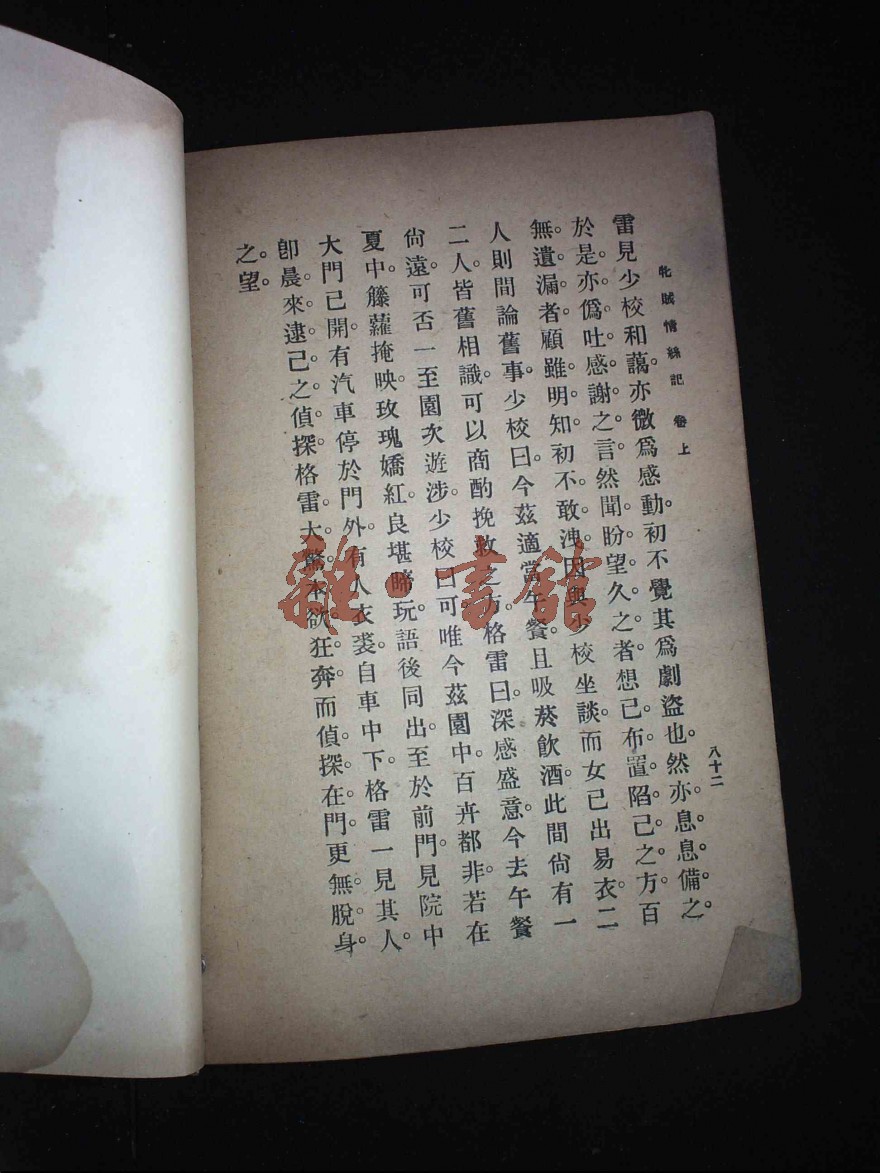 牝賊情絲記 卷上
八十二
雷見少校和藹。亦微爲感動。初不覺其爲劇盜也。然亦息息備之。
於是亦僞吐感謝之言。然聞盼望久之者。想已布置陷己之方。百
無遺漏者。顧雖明知。初不敢洩。因與少校坐談。而女已出易衣。二
人則間論舊事。少校曰。今茲適當午餐。且吸菸飲酒。此間尙有一
二人皆舊相識。可以商酌挽救之方。格雷曰。深感盛意。今去午餐
尙遠。可否一至園次遊涉。少校曰。可。唯今茲園中百卉都非。若在
夏中。籐蘿掩映。玫瑰嬌紅。良堪睇玩。語後同出。至於前門。見院中
大門已開。有汽車停於門外。有人衣裘。自車中下。格雷一見其人。
卽晨來逮己之偵探。格雷大驚。本欲狂奔。而偵探在門。更無脫身
之望。
雜·書館